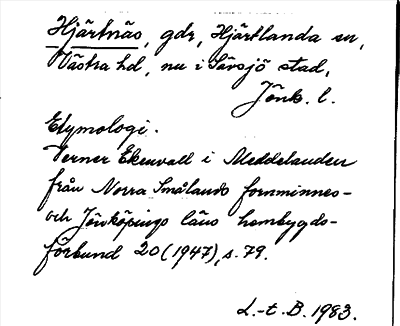 Hjärtnäs, gdr, Hjärtlanda sn,
Västra hd, nu i Sävsjö stad,
Jönk. l.
Etymologi.
Verner Ekenvall i Meddelanden
från Norra Smålands fornminnes-
och Jönköpings läns hembygds-
förbund 20 (1947), s. 79.
L.-t. B. 1983.